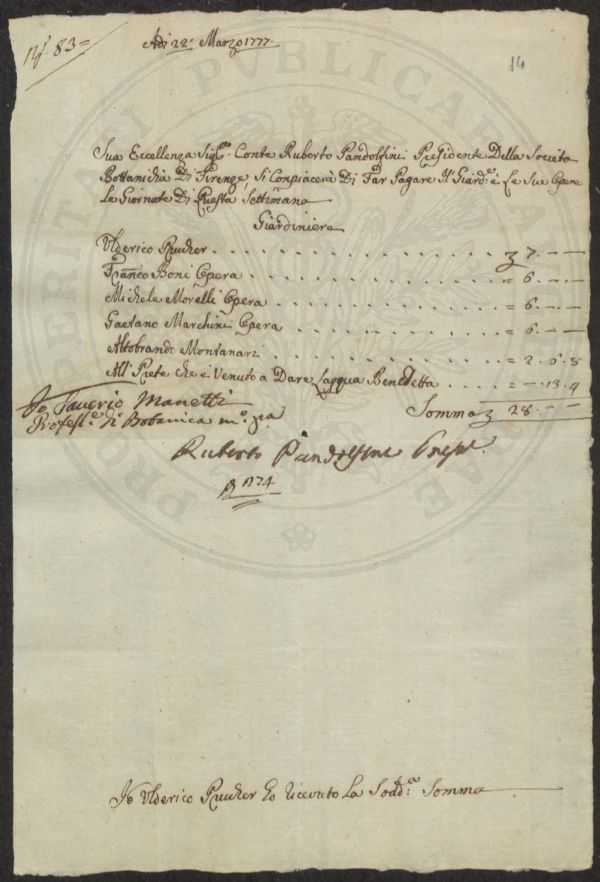 N.° 83=
Adi 22: Marzo 1777.
14
Sua Eccellenza Sig.re Conte Ruberto Pandolfini Presidente Della Societa
Bottanicha Di Firenze, Si Conpiacerà Di Far Pagare Il Giard.e è Le Sue Opere
Le Giornate Di Questa Settimana
Giardiniere
Ulderico Prucker . . . . . . . . . . . 7. — —
Franco Boni Opera . . . . . . . . . . . = 6. — —
Michele Morelli Opera . . . . . . . . . . . = 6. — —
Gaetano Marchini Opera . . . . . . . . . . . = 6. — —
Altobrando Montanari . . . . . . . . . . . = 2. 6. 8
All Prete che è Venuto a Dare Lacqua Benedetta . . . . = —. 13. 4
Somma 28. — —
Io Saverio Manetti
Profess.e di Botanica m.o p.a
Ruberto Pandolfini Presid.
1174
Io Ulderico Prucker Ho ricevuto La Sodd.a Somma
PUBLICAE